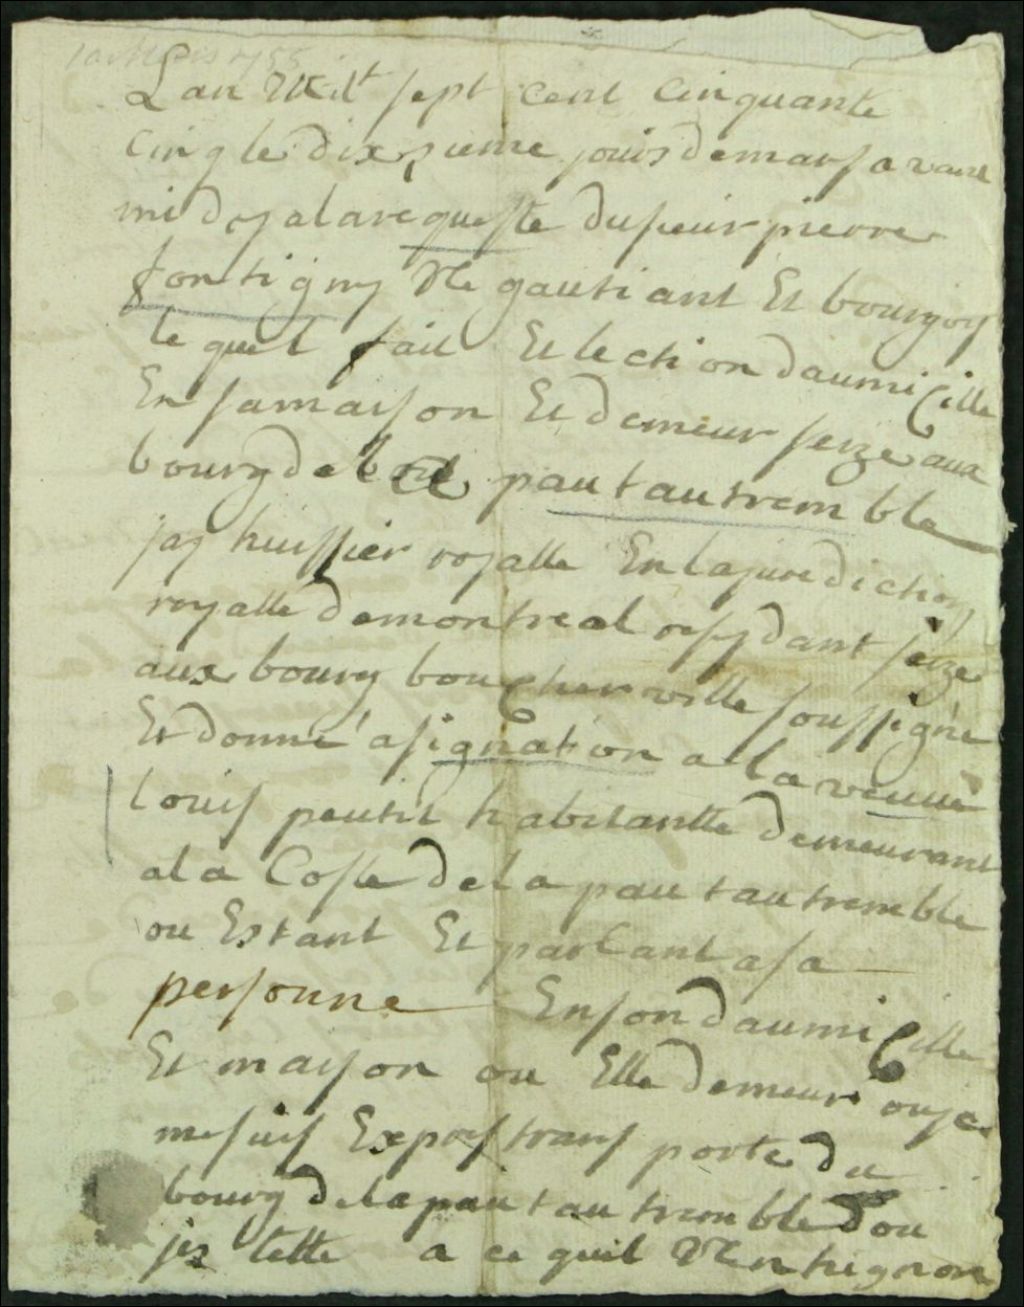 10 Mars 1755
Lan Mil sept cent Cinquante
Cinq le dixsieme jouis de mars avant
midy a la requeste du sieur pierre
fontigny Negautiant Et bourgois
le quel fait Et lection daumicille
En sa maison Et demeur seize aux
bourg de la pautautremble
jay huissier royalle En la jurediction
royalle de montreal resydant seize
aux bourg boucherville soussigné
Et donné asignation a la veuue
louis peutit habitantte demeurant
a la Coste de la pautautremble
ou Estant Et parlant a sa
personne En son daumicille
Et maison ou Elle demeur ou je
me suis Expres transporte du
bourg de la pautautremble dou
jes lette a ce quil Nen hignore